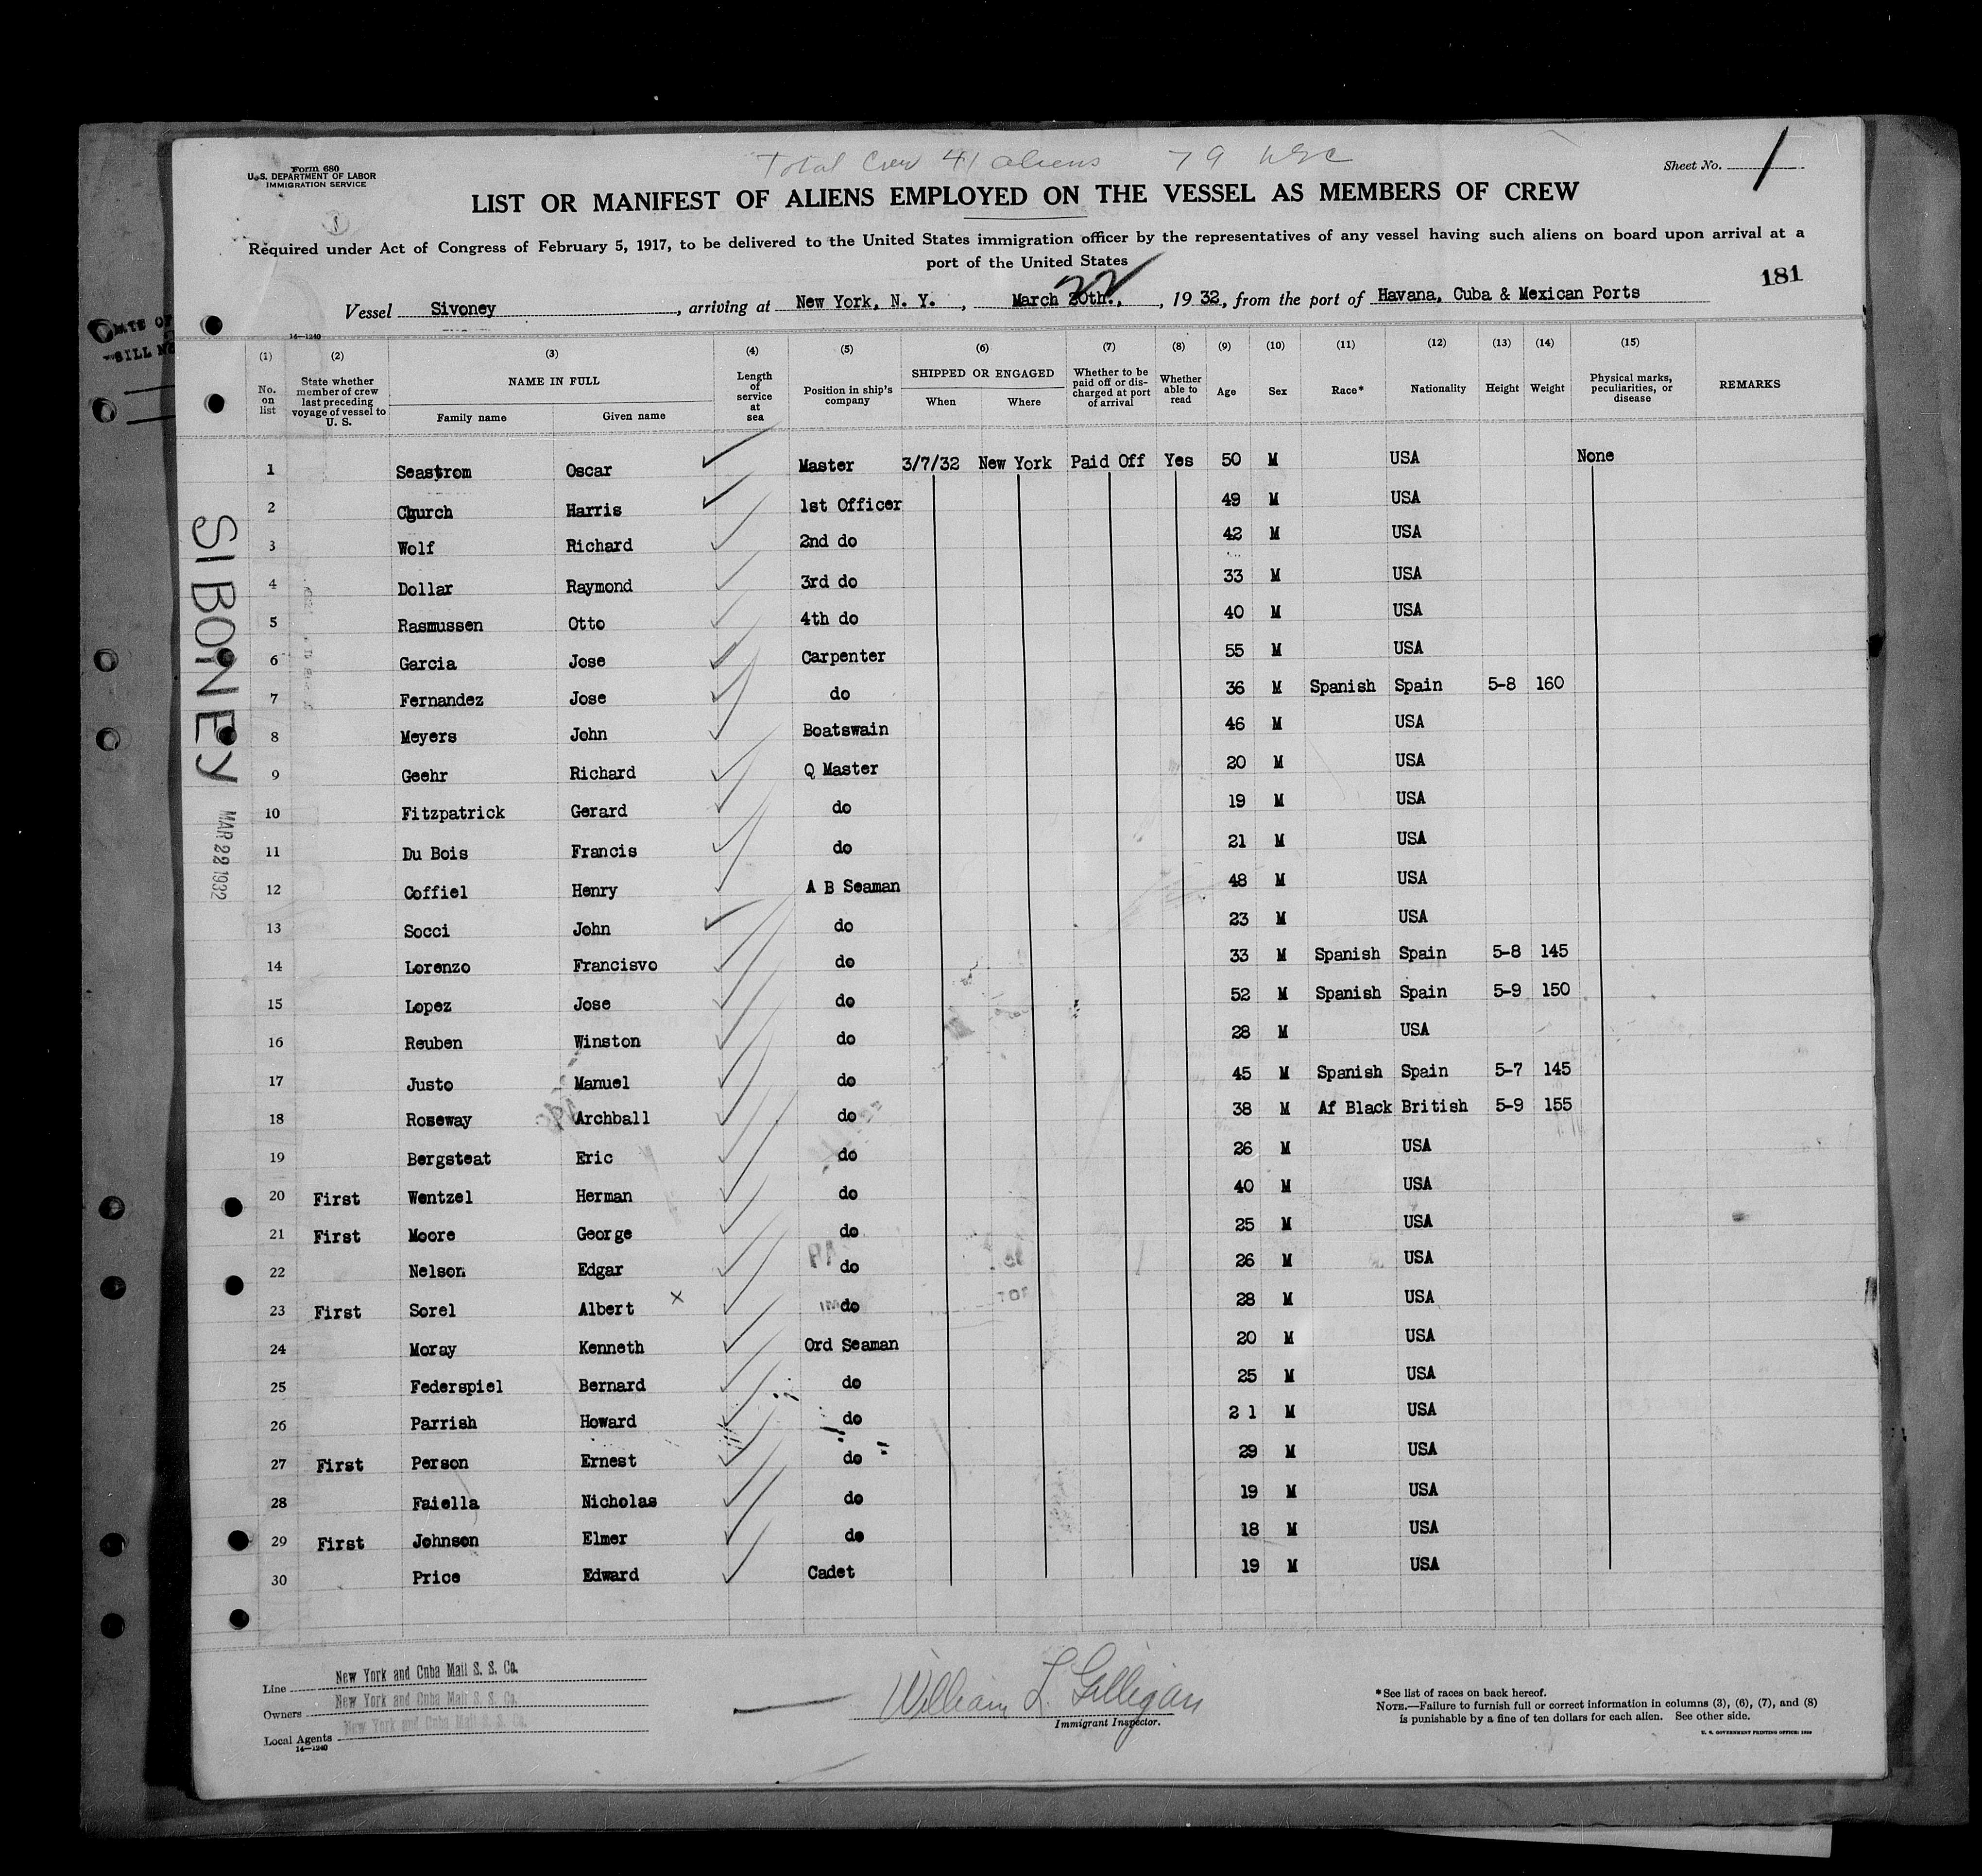 Total Crew 41 aliens 79 USC
Form 680
U. S. DEPARTMENT OF LABOR
IMMIGRATION SERVICE
Sheet No. 1
LIST OR MANIFEST OF ALIENS EMPLOYED ON THE VESSEL AS MEMBERS OF CREW
Required under Act of Congress of February 5, 1917, to be delivered to the United States immigration officer by the representatives of any vessel having such aliens on board upon arrival at a
port of the United States
181
22
Vessel Sivoney, arriving at New York, N. Y., March 20th., 1932, from the port of Havana, Cuba & Mexican Ports
14—1240
(1) (2) (3) (4) (5) (6) (7) (8) (9) (10) (11) (12) (13) (14) (15)
No. on list
State whether member of crew last preceding voyage of vessel to U. S.
NAME IN FULL
Family name Given name
Length of service at sea
Position in ship's company
SHIPPED OR ENGAGED
When Where
Whether to be paid off or discharged at port of arrival
Whether able to read
Age Sex Race* Nationality Height Weight
Physical marks, peculiarities, or disease
REMARKS
1 Seastrom Oscar Master 3/7/32 New York Paid Off Yes 50 M USA None
2 Church Harris 1st Officer 49 M USA
3 Wolf Richard 2nd do 42 M USA
4 Dollar Raymond 3rd do 33 M USA
5 Rasmussen Otto 4th do 40 M USA
6 Garcia Jose Carpenter 55 M USA
7 Fernandez Jose do 36 M Spanish Spain 5-8 160
8 Meyers John Boatswain 46 M USA
9 Geehr Richard Q Master 20 M USA
10 Fitzpatrick Gerard do 19 M USA
11 Du Bois Francis do 21 M USA
12 Coffiel Henry A B Seaman 48 M USA
13 Socci John do 23 M USA
14 Lorenzo Francisvo do 33 M Spanish Spain 5-8 145
15 Lopez Jose do 52 M Spanish Spain 5-9 150
16 Reuben Winston do 28 M USA
17 Justo Manuel do 45 M Spanish Spain 5-7 145
18 Roseway Archball do 38 M Af Black British 5-9 155
19 Bergsteat Eric do 26 M USA
20 First Wentzel Herman do 40 M USA
21 First Moore George do 25 M USA
22 Nelson Edgar do 26 M USA
23 First Sorel Albert x do 28 M USA
24 Moray Kenneth Ord Seaman 20 M USA
25 Federspiel Bernard do 25 M USA
26 Parrish Howard do 2 1 M USA
27 First Person Ernest do 29 M USA
28 Faiella Nicholas do 19 M USA
29 First Johnson Elmer do 18 M USA
30 Price Edward Cadet 19 M USA
SIBONEY
MAR 22 1932
Line New York and Cuba Mail S. S. Co.
Owners New York and Cuba Mail S. S. Co.
Local Agents New York and Cuba Mail S. S. Co.
14—1240
William L. Gilligan
Immigrant Inspector.
*See list of races on back hereof.
NOTE.—Failure to furnish full or correct information in columns (3), (6), (7), and (8)
is punishable by a fine of ten dollars for each alien. See other side.
U. S. GOVERNMENT PRINTING OFFICE